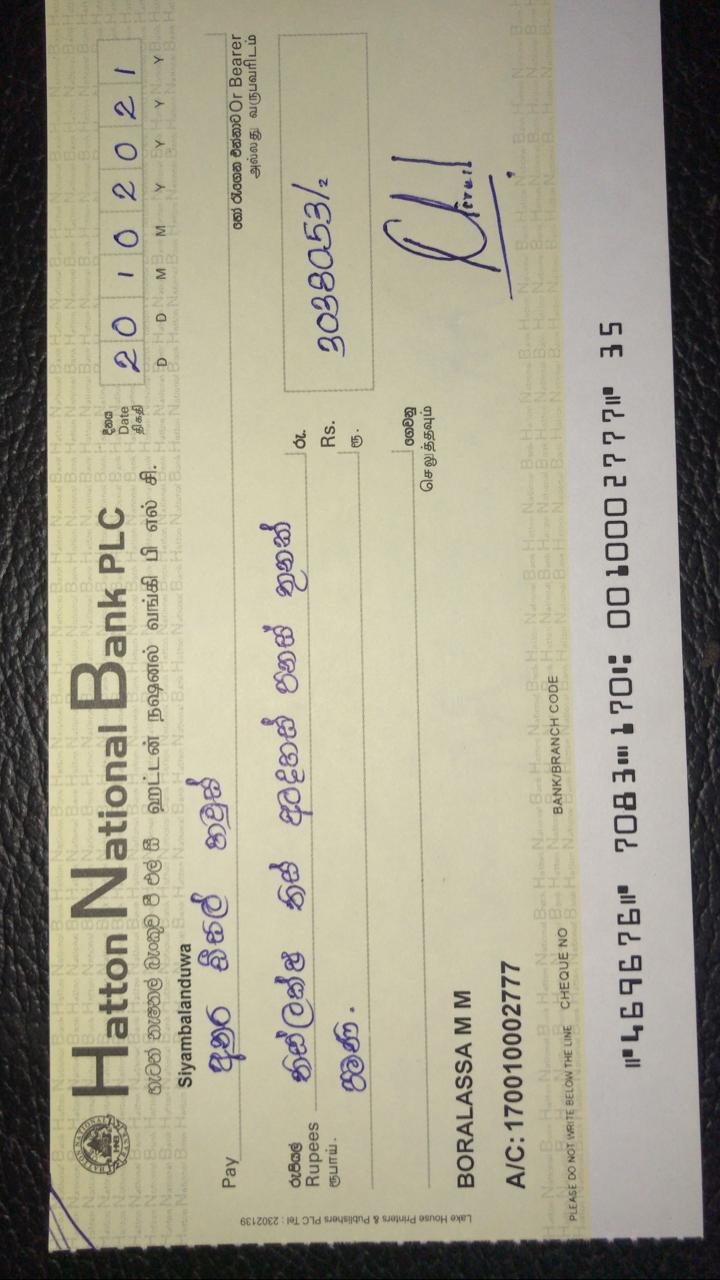 Hatton National Bank PLC
හැටන් නැෂනල් බැංකුව පී එල් සී ஹட்டன் நஷனல் வங்கி பி எல் சி.
දිනය
Date
திகதி
2 0 1 0 2 0 2 1
D D M M Y Y Y Y
Siyambalanduwa
Pay
හෝ රැගෙන එන්නාට Or Bearer
அல்லது வருபவரிடம்
රුපියල්
Rupees
ரூபாய்.
තිස්ලක්ෂ තිස් අටදහස් පනස් තුනක්
පමණි.
රු.
Rs.
ரூ.
3038053/2
ගෙවනු
செலுத்தவும்
BORALASSA M M
A/C:170010002777
PLEASE DO NOT WRITE BELOW THE LINE CHEQUE NO BANK/BRANCH CODE
⑈469676⑈ 7083⑉170⑆ 0010002777⑈ 35
Lake House Printers & Publishers PLC Tel : 2302139